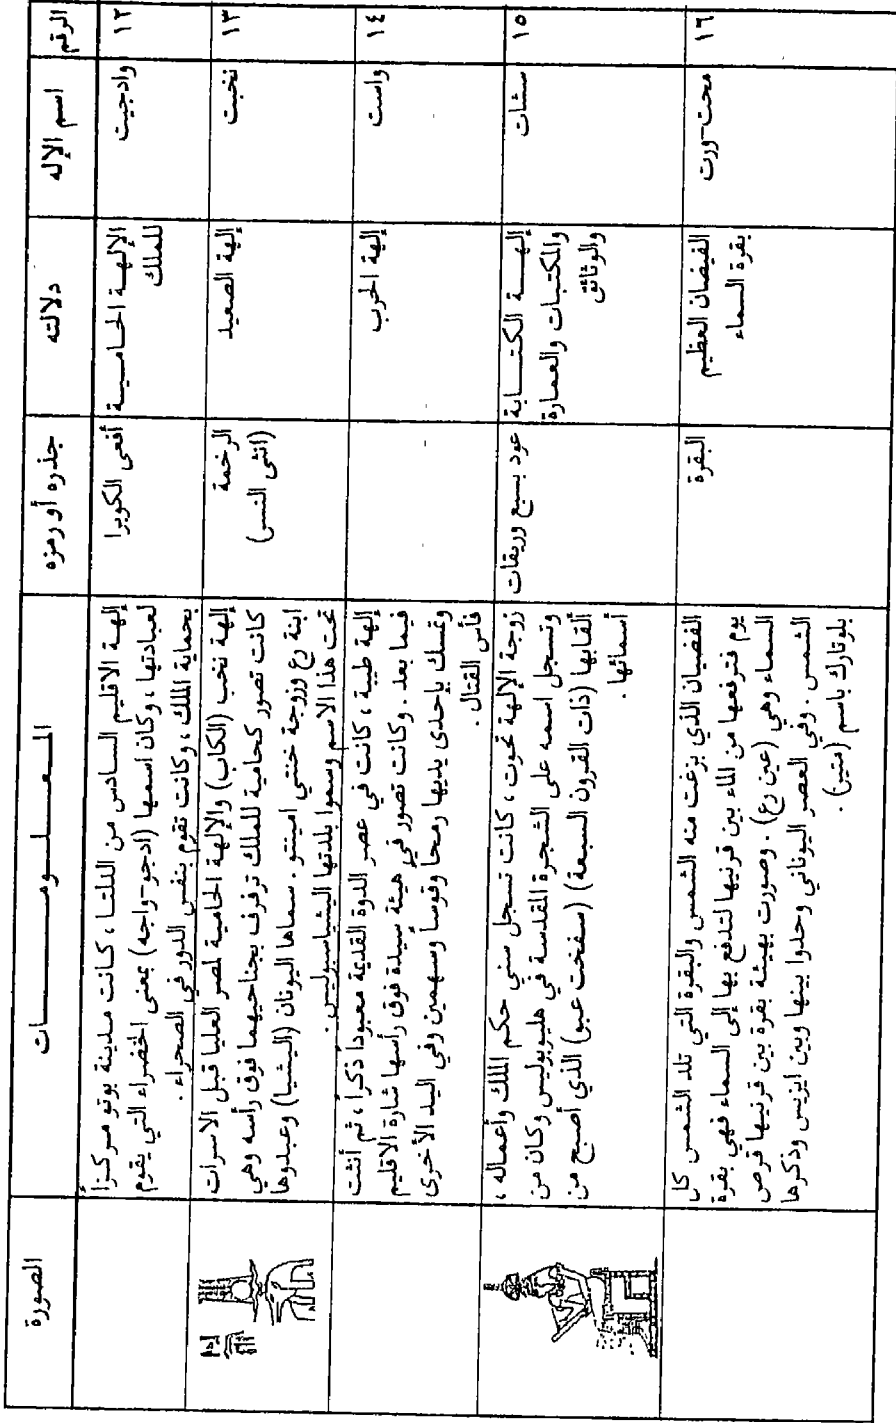 الرقم
اسم الإله
دلالته
جذره أو رمزه
المعلومات
الصورة
١٢
وادجيت
الإلهة الحامية
للملك
أفعى الكوبرا
إلهة الاقليم السادس من الدلتا ، كانت مدينة بوتو مركزاً
لعبادتها ، وكان اسمها (ادجو-واجه) بمعنى الخضراء التي يقوم
بحماية الملك ، وكانت تقوم بنفس الدور في الصحراء .
١٣
نخبت
إلهة الصعيد
الرخمة
(انثى النسر)
إلهة نخب (الكاب) والإلهة الحامية لمصر العليا قبل الاسرات
كانت تصور كحامية للملك ترفرف بجناحيهما فوق رأسه وهي
ابنة رع وزوجة خنتي امينتو . سماها اليونان (اليثيا) وعبدوها
تحت هذا الاسم وسموا بلدتها اليثياسبوليس .
١٤
واست
إلهة الحرب
-
إلهة طيبة ، كانت في عصر الدوة القديمة معبوداً ذكراً ، ثم أنثت
فيما بعد . وكانت تصور في هيئة سيدة فوق رأسها شارة الاقليم
وتمسك بإحدى يديها رمحا وقوسا وسهمين وفي اليد الأخرى
فأس القتال .
١٥
سشات
إلهة الكتابة
والمكتبات والعمارة
والوثائق
عود بسبع وريقات
زوجة الإلهة تحوت ، كانت تسجل سني حكم الملك وأعماله ،
وتسجل اسمه على الشجرة المقدسة في هليوبوليس وكان من
ألقابها (ذات القرون السبعة) (سفخت عبو) الذي أصبح من
أسمائها .
١٦
محت-ورت
الفيضان العظيم
بقرة السماء
البقرة
الفضيان الذي بزغت منه الشمس والبقرة التي تلد الشمس كل
يوم فترفعها من الماء بين قرنيها لتدفع بها إلى السماء فهي بقرة
السماء وهي (عين رع) . وصورت بهيئة بقرة بين قرنيها قرص
الشمس . وفي العصر اليوناني وحدوا بينها وبين ايزيس وذكرها
بلوتارك باسم (مثير) .